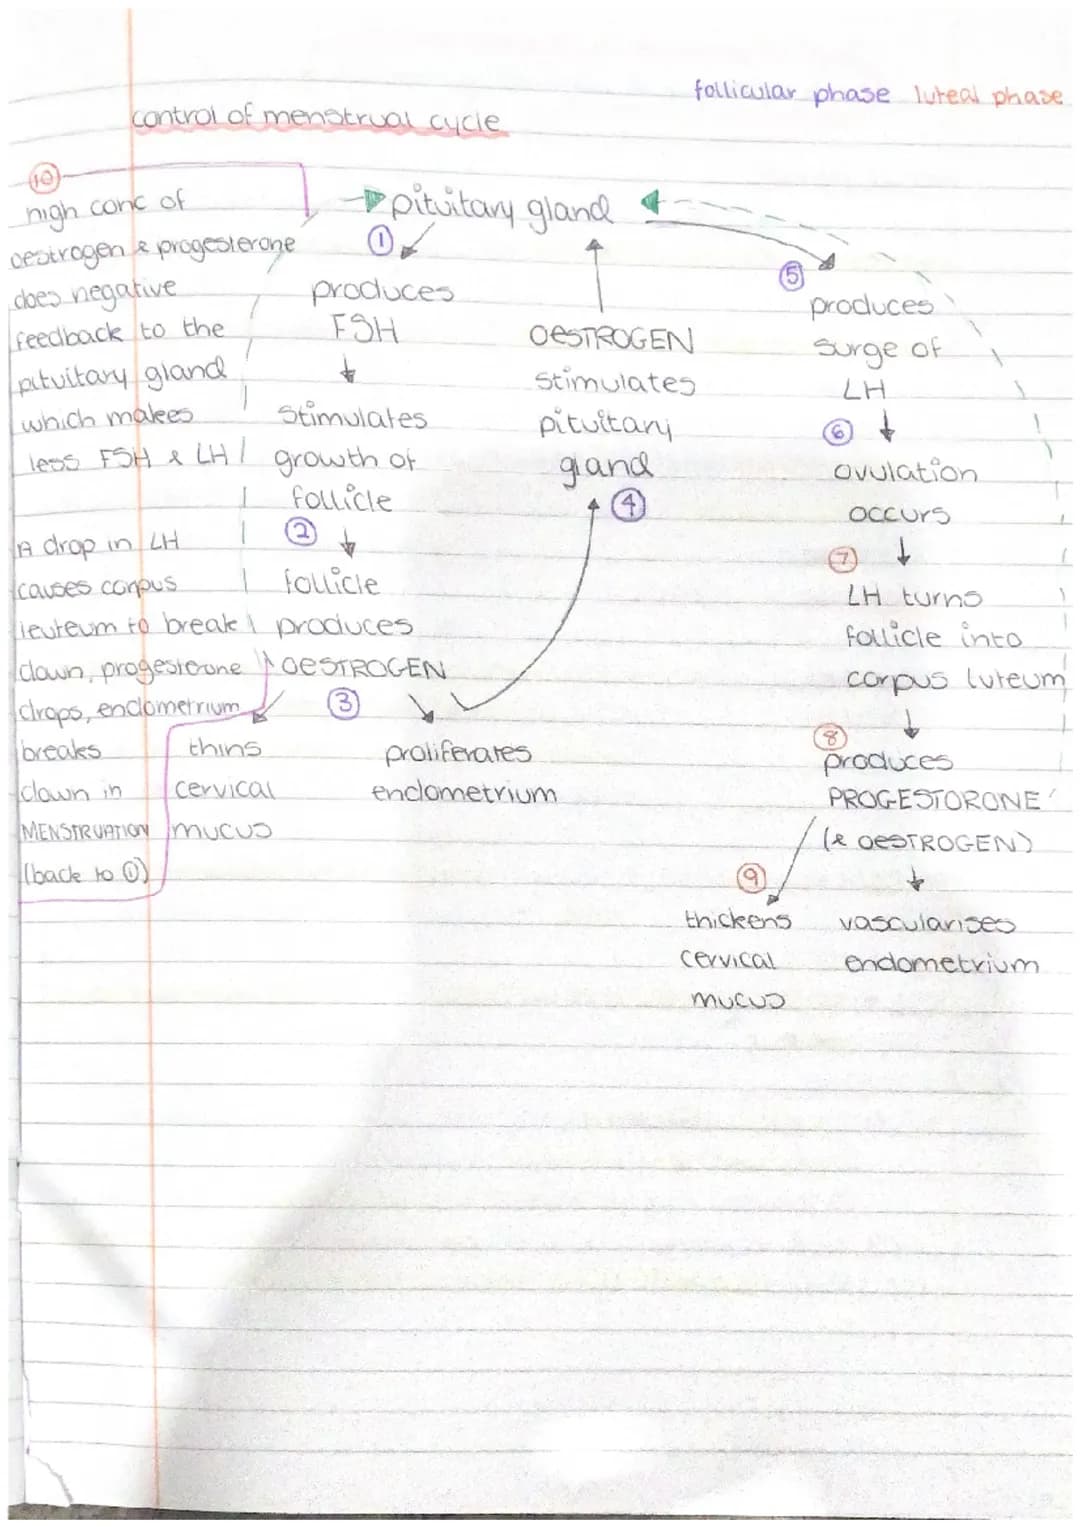 follicular phase luteal phase
control of menstrual cycle
10
high conc of
oestrogen & progesterone
does negative
feedback to the
pituitary gland
which makes
less FSH & LH
A drop in LH
causes corpus
leuteum to break
down, progesterone
drops, endometrium
breaks
down in
MENSTRUATION
(back to ①)
pituitary gland
1
produces
FSH
stimulates
growth of
follicle
2
follicle
produces
OESTROGEN
3
thins
cervical
mucus
proliferates
endometrium
OESTROGEN
stimulates
pituitary
gland
4
5
produces
surge of
LH
6
ovulation
occurs
7
LH turns
follicle into
corpus luteum
8
produces
PROGESTORONE
(& OESTROGEN)
9
thickens
cervical
mucus
vascularises
endometrium